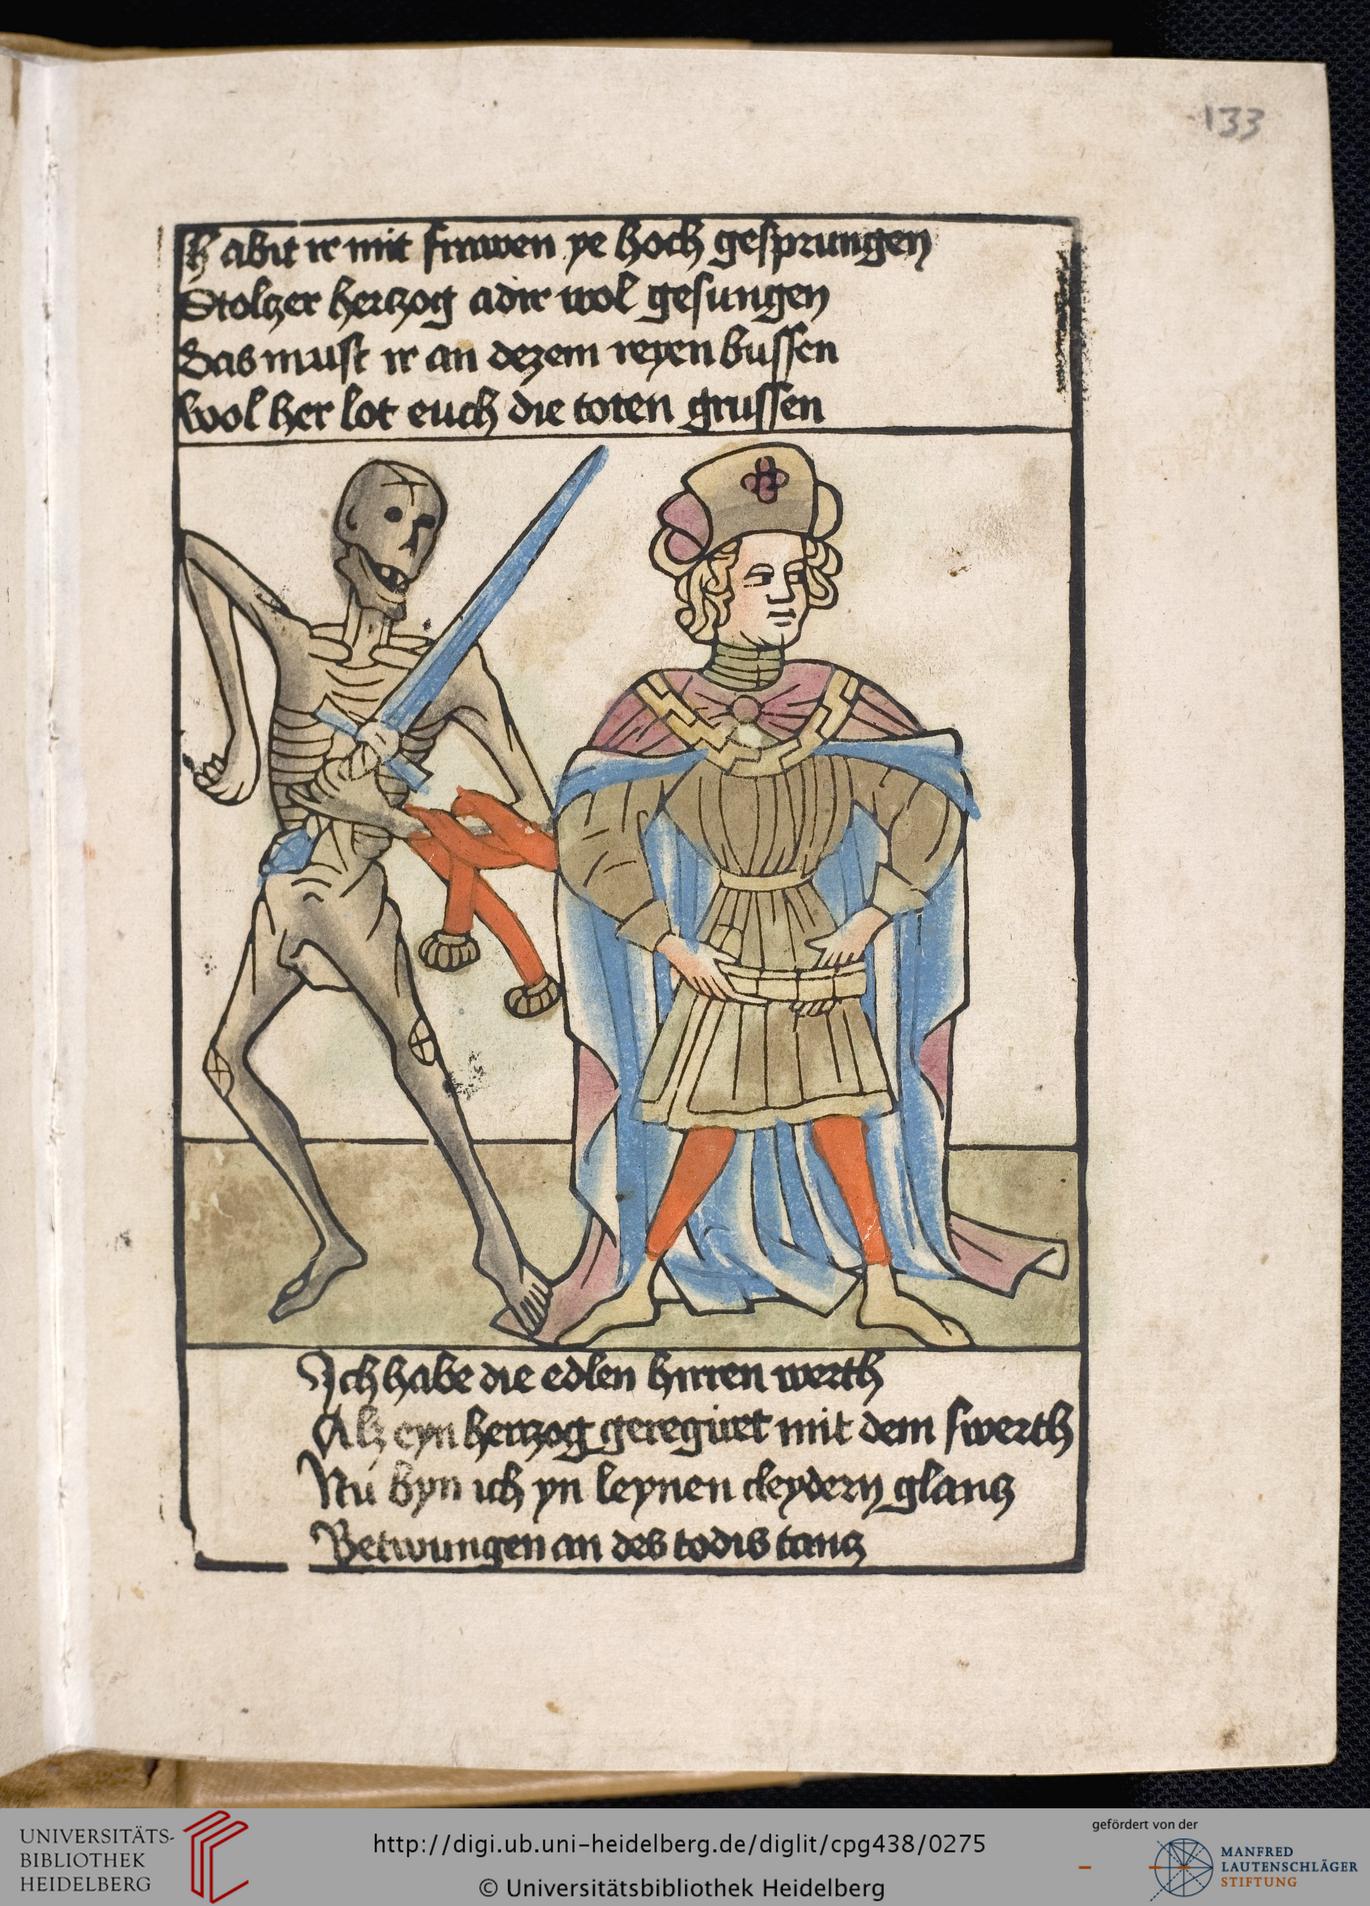 133
Habit ir mit frawen ye hoch gesprungen
Stolczer herczog adir wol gesungen
Das must ir an dezem reyen bussen
Wol her lot euch die toten grussen
Ich habe die edlen hirren werth
Alz eyn herczog geregiret mit dem swerth
Nu byn ich yn leynen cleydern glancz
Betwungen an des todis tancz
UNIVERSITÄTS-
BIBLIOTHEK
HEIDELBERG
http://digi.ub.uni-heidelberg.de/diglit/cpg438/0275
© Universitätsbibliothek Heidelberg
gefördert von der
MANFRED
LAUTENSCHLÄGER
STIFTUNG